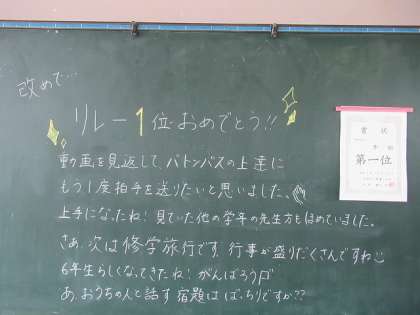 改めて…
リレー1位おめでとう!!
動画を見返して、バトンパスの上達に
もう1度拍手を送りたいと思いました。
上手になったね!見ていた他の学年の先生方もほめていました。
さぁ、次は修学旅行です。行事が盛りだくさんですね
6年生らしくなってきたね!がんばろう
あ、おうちの人と話す宿題はばっちりですか??
賞状
第一位